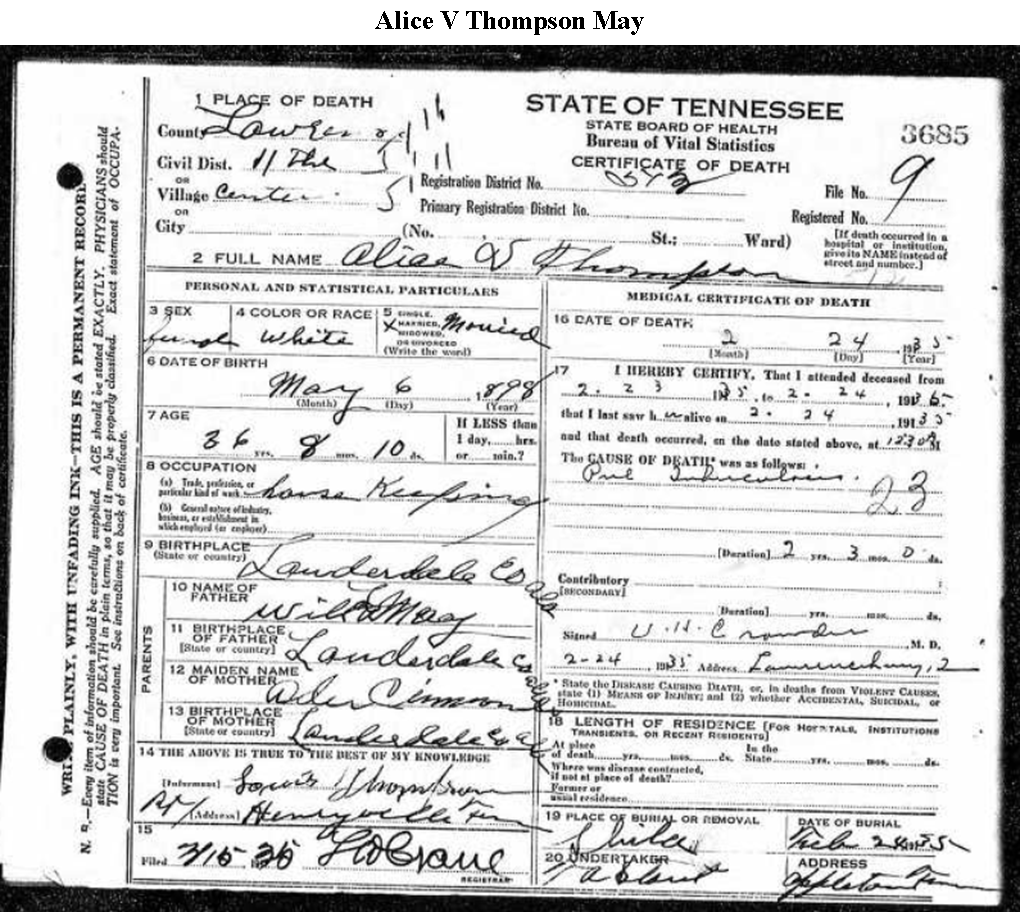 Alice V Thompson May
1 PLACE OF DEATH
County
Civil Dist. 11 The 5
OR
Village Center
OR
City (No. St.; Ward)
STATE OF TENNESSEE
STATE BOARD OF HEALTH
Bureau of Vital Statistics
CERTIFICATE OF DEATH
3685
Registration District No.
Primary Registration District No.
File No. 9
Registered No.
[If death occurred in a
hospital or institution,
give its NAME instead of
street and number.]
2 FULL NAME Alice V Thompson
PERSONAL AND STATISTICAL PARTICULARS
3 SEX
4 COLOR OR RACE White
5 SINGLE,
MARRIED, Married
WIDOWED,
OR DIVORCED
(Write the word)
6 DATE OF BIRTH
May 6, 1898
(Month) (Day) (Year)
7 AGE
36 yrs. 8 mos. 10 ds.
If LESS than
1 day, hrs.
or min.?
8 OCCUPATION
(a) Trade, profession, or
particular kind of work house Keeping
(b) General nature of industry,
business, or establishment in
which employed (or employer)
9 BIRTHPLACE
(State or country) Lauderdale Co Ala
PARENTS
10 NAME OF
FATHER May
11 BIRTHPLACE
OF FATHER
[State or country] Lauderdale Co Ala
12 MAIDEN NAME
OF MOTHER
13 BIRTHPLACE
OF MOTHER
[State or country] Lauderdale Co Ala
14 THE ABOVE IS TRUE TO THE BEST OF MY KNOWLEDGE
[Informant] Thompson
[Address] Henryville Tenn
15
Filed 3/15 35
REGISTRAR
MEDICAL CERTIFICATE OF DEATH
16 DATE OF DEATH
2 24 1935
[Month] (Day) [Year]
17 I HEREBY CERTIFY, That I attended deceased from
2-23 1935, to 2-24, 1935
that I last saw h alive on 2-24 1935
and that death occurred, on the date stated above, at M
The CAUSE OF DEATH* was as follows:
Pul Tuberculosis
23
[Duration] 2 yrs. 3 mos. 0 ds.
Contributory
[SECONDARY]
[Duration] yrs. mos. ds.
Signed Crowder, M. D.
2-24 1935 Address
*State the DISEASE CAUSING DEATH, or, in deaths from VIOLENT CAUSES,
state (1) MEANS OF INJURY; and (2) whether ACCIDENTAL, SUICIDAL, or
HOMICIDAL.
18 LENGTH OF RESIDENCE [FOR HOSPITALS, INSTITUTIONS
TRANSIENTS, OR RECENT RESIDENTS]
At place
of death yrs. mos. ds.
In the
State yrs. mos. ds.
Where was disease contracted,
if not at place of death?
Former or
usual residence
19 PLACE OF BURIAL OR REMOVAL
DATE OF BURIAL
20 UNDERTAKER
ADDRESS
Appleton Tenn
WRITE PLAINLY, WITH UNFADING INK—THIS IS A PERMANENT RECORD
N. B.—Every item of information should be carefully supplied. AGE should be stated EXACTLY. PHYSICIANS should
state CAUSE OF DEATH in plain terms, so that it may be properly classified. Exact statement of OCCUPA-
TION is very important. See instructions on back of certificate.